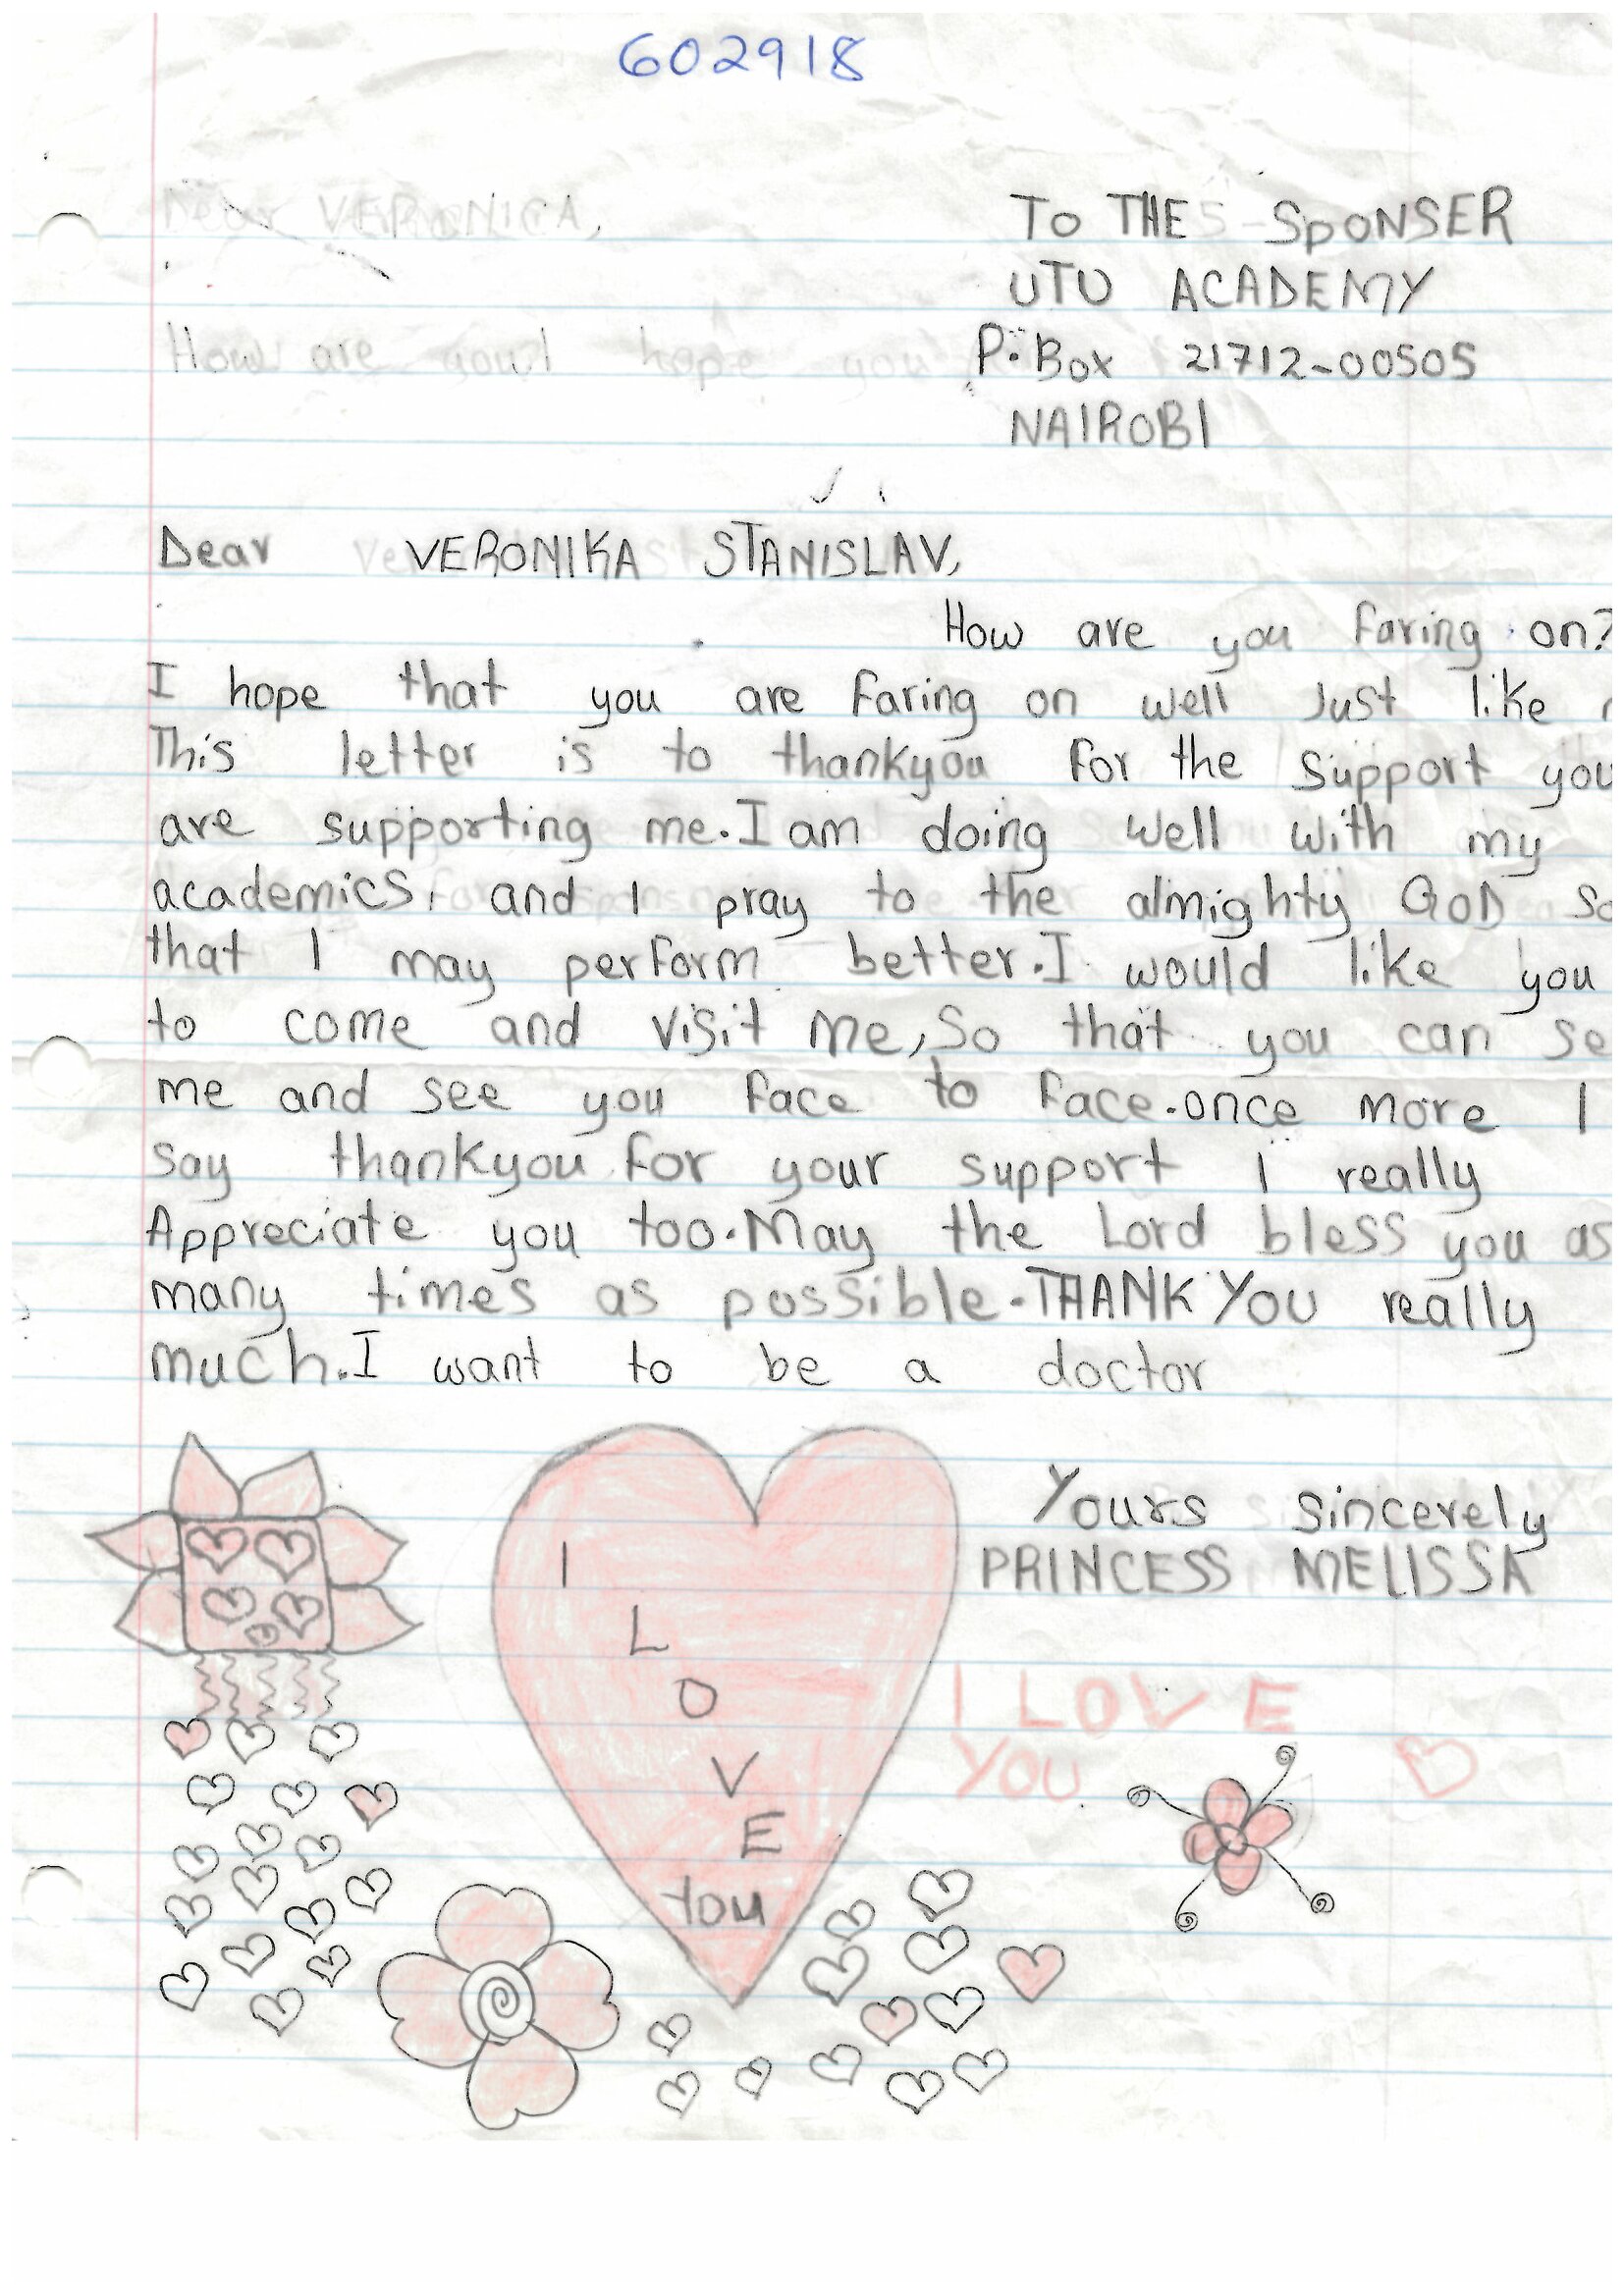 602918
Dear VERONICA,
To THE SPONSER
UTU ACADEMY
How are you I hope you
P. Box 21712-00505
NAIROBI
Dear VERONIKA STANISLAV,
How are you faring on?
I hope that you are faring on well Just like
This letter is to thankyou for the support you
are supporting me. I am doing well with my
academics, and I pray to the almighty GOD so
that I may perform better. I would like you
to come and visit me, So that you can se
me and see you face to face. once more I
say thankyou for your support I really
Appreciate you too. May the Lord bless you as
many times as possible. THANK YOU really
much. I want to be a doctor
Yours sincerely
PRINCESS MELISSA
I
L
O
V
E
You
I LOVE
YOU